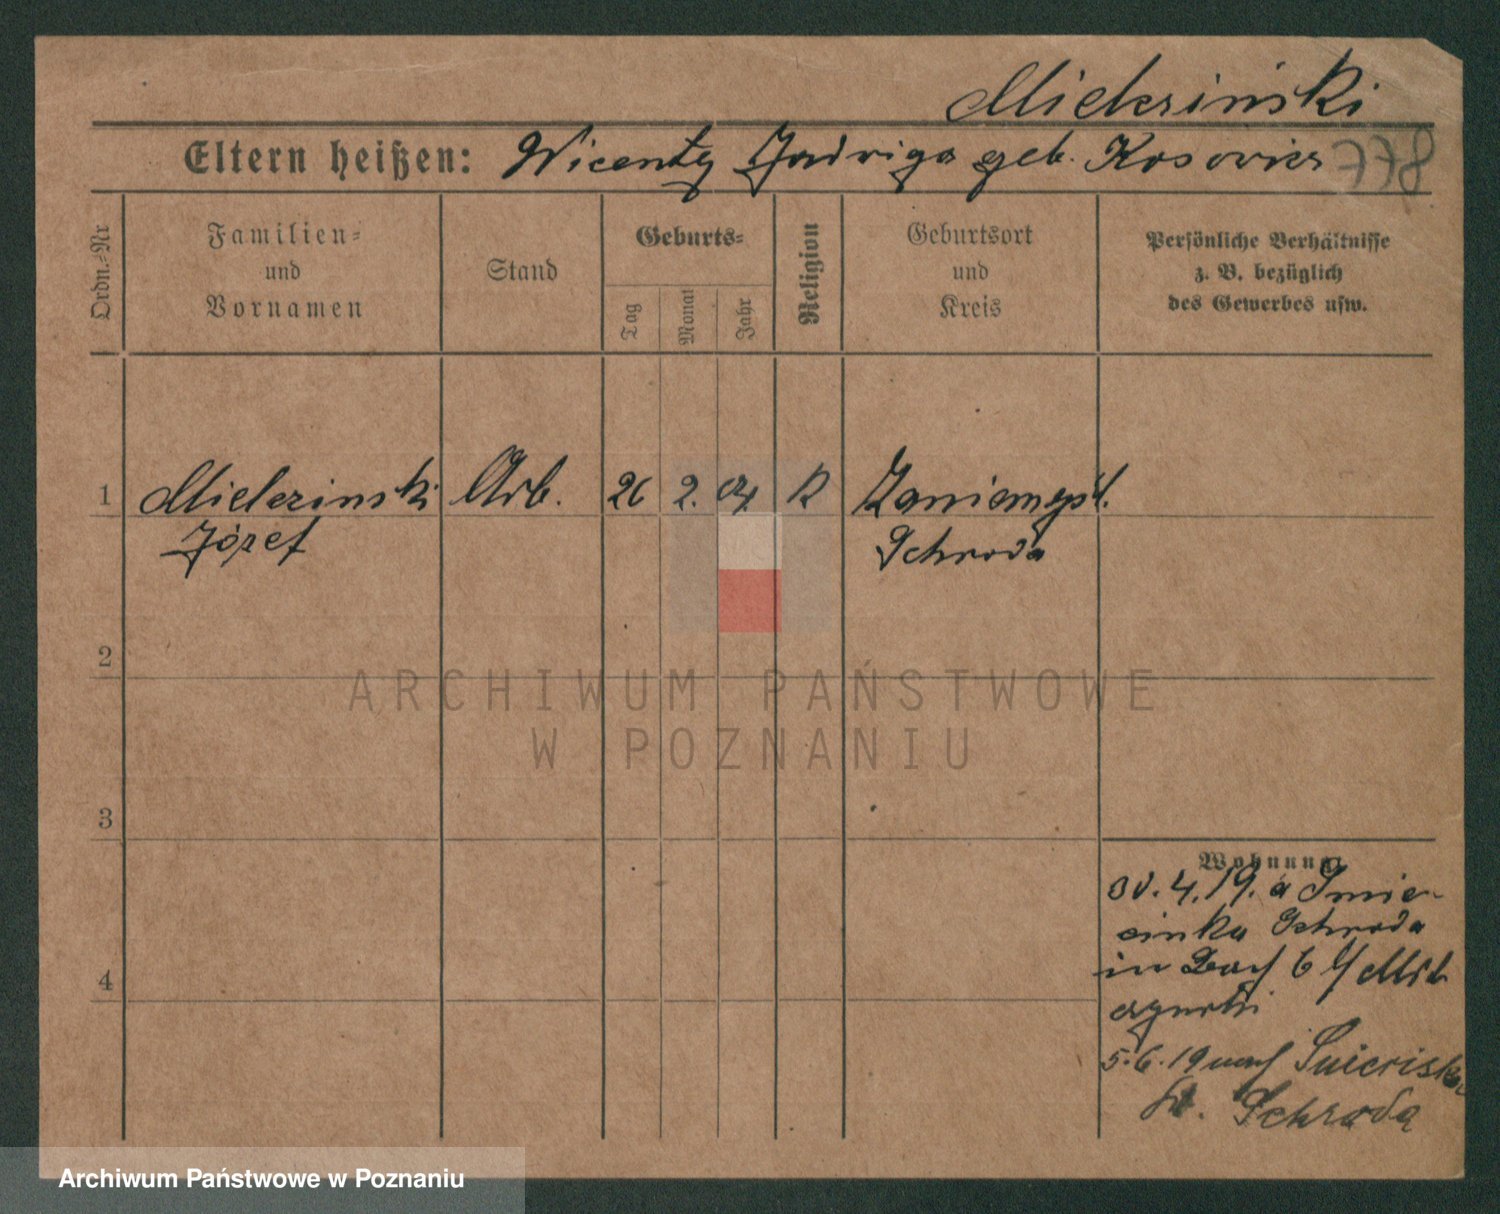 Mielczinski
Eltern heißen: Wicenty Jadviga geb. Kosovicz
778
Ordn.-Nr
Familien-
und
Vornamen
Stand
Geburts-
Tag
Monat
Jahr
Religion
Geburtsort
und
Kreis
Persönliche Verhältnisse
z. B. bezüglich
des Gewerbes usw.
1 Mielczinski Arb. 26 2. 04 R Zaniemyśl.
Józef Schroda
2
3
4
Wohnung
30.4.19. a
Schroda
in 6
5.6.19 nach
Kr. Schroda
ARCHIWUM PAŃSTWOWE
W POZNANIU
Archiwum Państwowe w Poznaniu